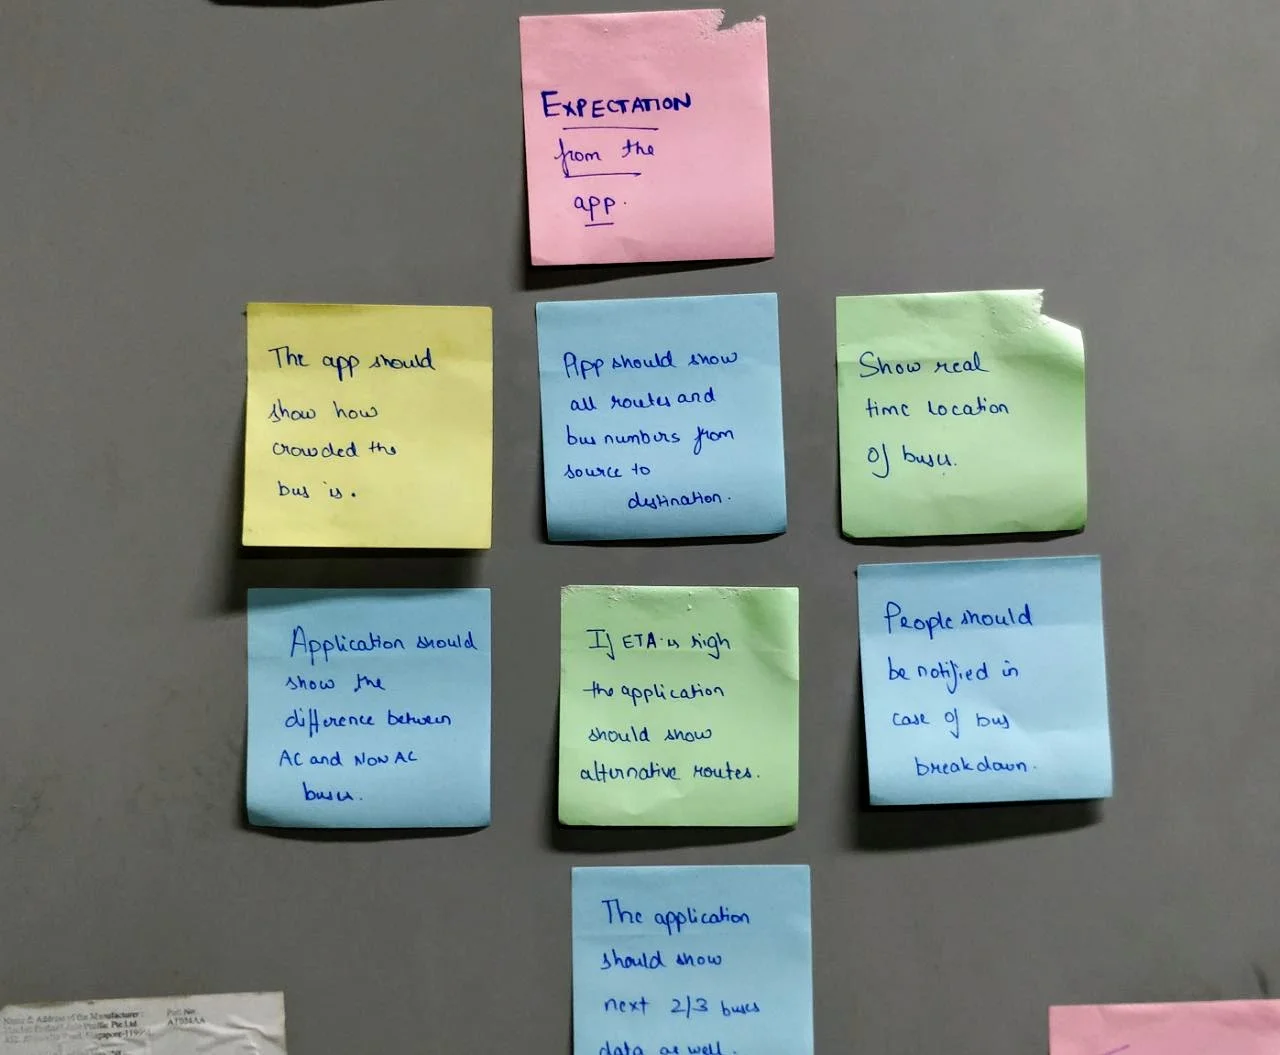 EXPECTATION
from the
app.
The app should
show how
crowded the
bus is.
App should show
all routes and
bus numbers from
source to
destination.
Show real
time location
of buses.
Application should
show the
difference between
AC and NON AC
buses.
If ETA is high
the application
should show
alternative routes.
People should
be notified in
case of bus
breakdown.
The application
should show
next 2/3 buses
data as well.
Name & Address of the Manufacturer:
Pacific Pte Ltd
Singapore-1199
Part No.